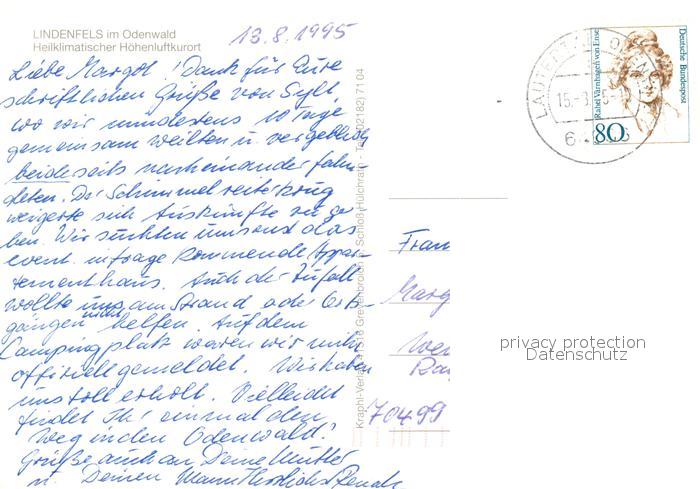 LINDENFELS im Odenwald
Heilklimatischer Höhenluftkurort
13.8.1995
Liebe Margot! Dank für Eure
schriftlichen Grüße von Sylt,
wo wir mindestens 10 Tage
gemeinsam weilten u. vergeblich
beiderseits nacheinander fahn-
deten. Der Schimmelreiterkrug
weigerte sich Auskünfte zu ge
ben. Wir suchten umsonst das
event. infrage kommende Appar-
tementhaus. Auch der Zufall
wollte uns am Strand oder
gängen nicht helfen. Auf dem
Campingplatz waren wir nicht
offiziell gemeldet. Wir haben
uns toll erholt. Vielleicht
findet Ihr einmal den
Weg in den Odenwald!
Grüße auch an Deine Mutter
u. Deinen Mann Herzlichst
Krapohl-Verlag 41516 Grevenbroich Schloß Hülchrath - Tel. (02182) 71 04
LAUTERTAL, ODENW
15.-8. 5
6
Deutsche Bundespost
Rahel Varnhagen von Ense
80
Frau
Marg
Wer
70499
privacy protection
Datenschutz